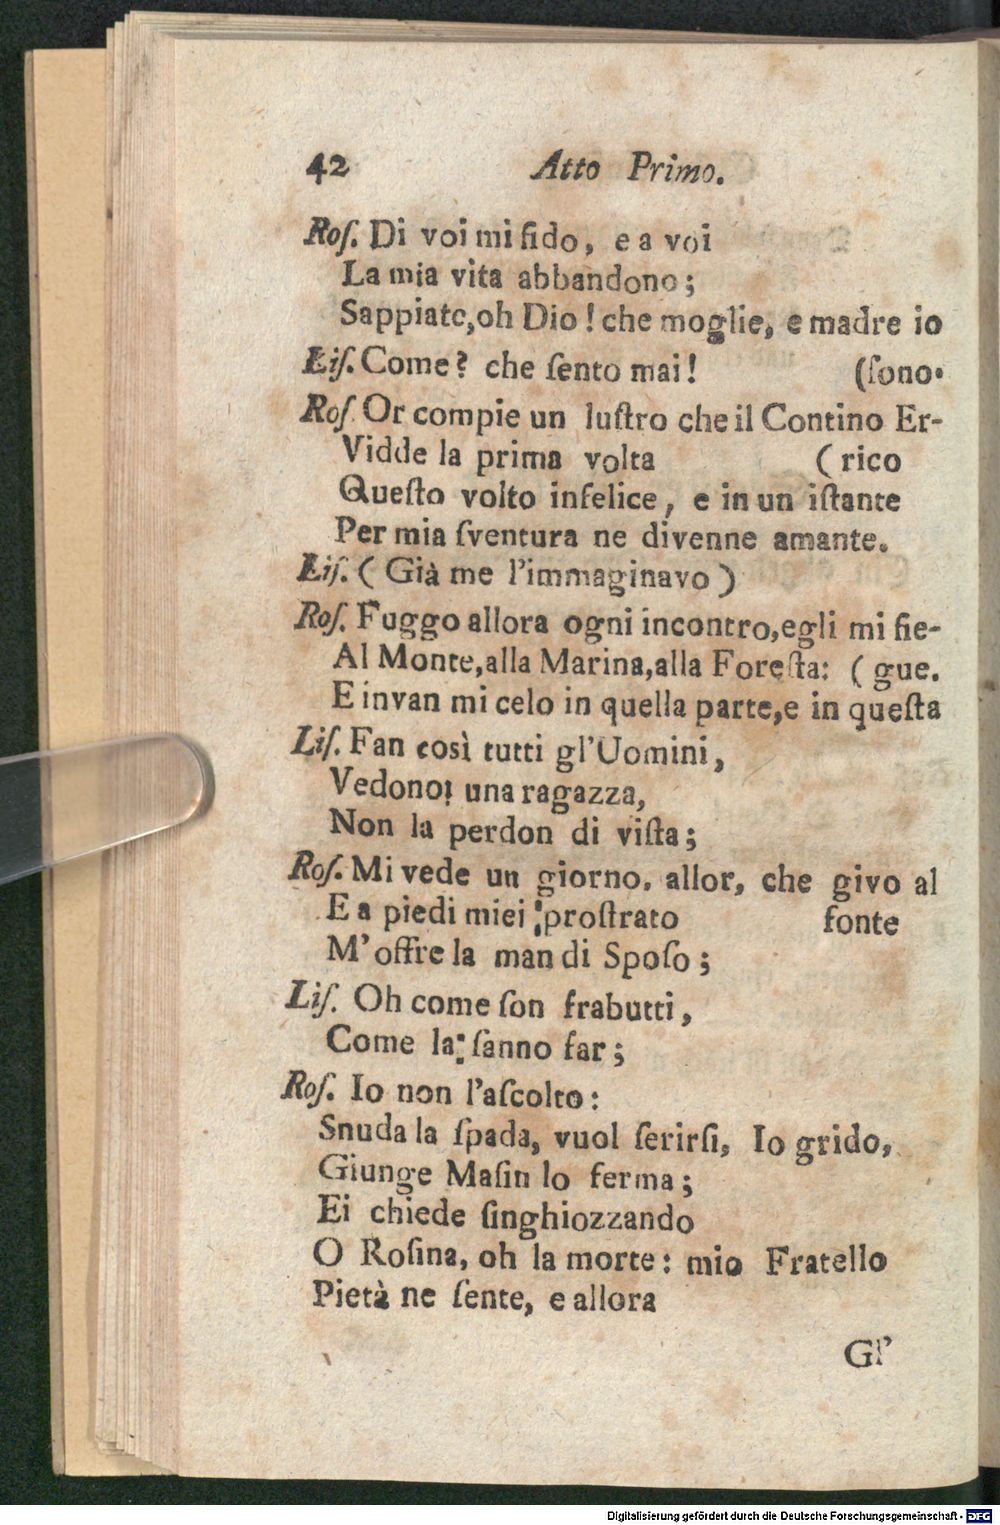 42 Atto Primo.
Roſ. Di voi mi fido, e a voi
La mia vita abbandono;
Sappiate, oh Dio! che moglie, e madre io
Liſ. Come? che ſento mai! (ſono.
Roſ. Or compie un luſtro che il Contino Er-
Vidde la prima volta (rico
Queſto volto infelice, e in un iſtante
Per mia ſventura ne divenne amante.
Liſ. (Già me l'immaginavo)
Roſ. Fuggo allora ogni incontro, egli mi ſie-
Al Monte, alla Marina, alla Foreſta: (gue.
E invan mi celo in quella parte, e in queſta
Liſ. Fan così tutti gl'Uomini,
Vedono: una ragazza,
Non la perdon di viſta;
Roſ. Mi vede un giorno, allor, che givo al
E a piedi miei proſtrato fonte
M'offre la man di Spoſo;
Liſ. Oh come ſon frabutti,
Come la ſanno far;
Roſ. Io non l'aſcolto:
Snuda la ſpada, vuol ferirſi, Io grido,
Giunge Maſin lo ferma;
Ei chiede ſinghiozzando
O Roſina, oh la morte: mio Fratello
Pietà ne ſente, e allora
Gl'
Digitalisierung gefördert durch die Deutsche Forschungsgemeinschaft - DFG